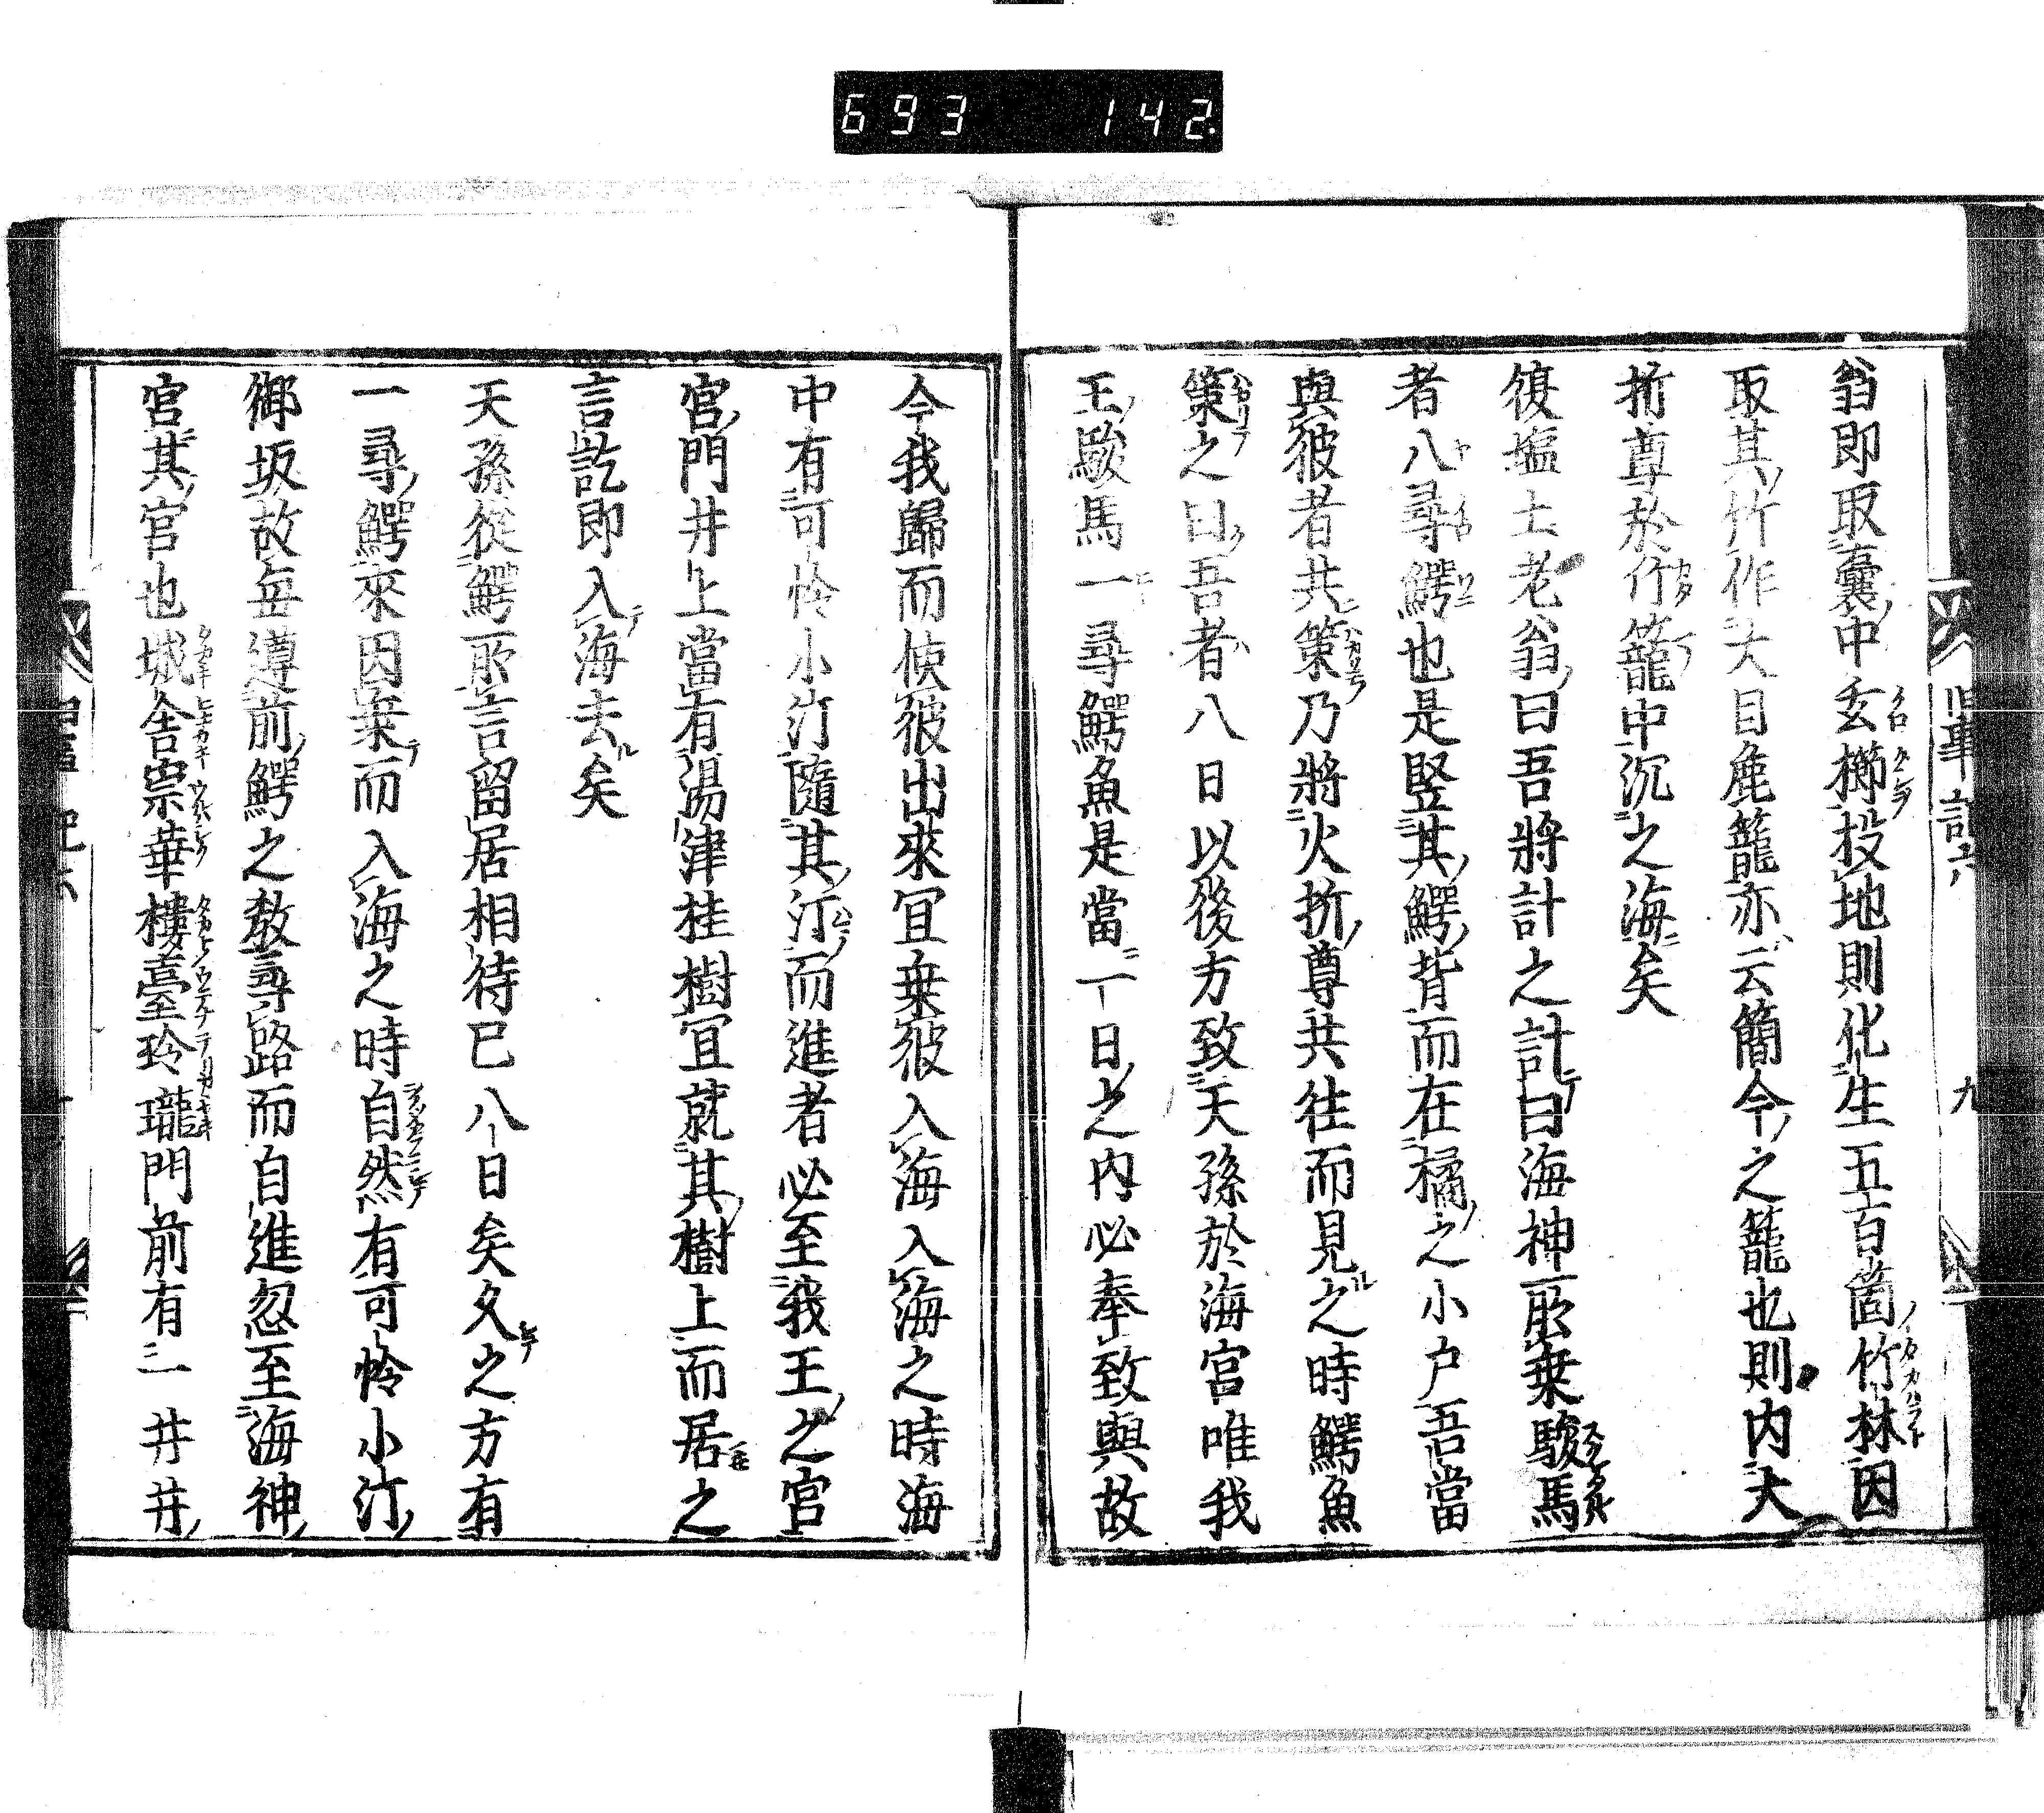 693 142.
翁即取囊中玄櫛投地則化生五百箇竹林因
取其竹作大目麁籠亦云簡今之籠也則内大
折尊於竹籠中沉之海矣
復塩土老翁曰吾將計之計曰海神所乗駿馬
者八尋鰐也是竪其鰐背而在橘之小戸吾當
與彼者共策乃將火折尊共往而見之時鰐魚
策之曰吾者八日以後方致天孫於海宮唯我
王駿馬一尋鰐魚是當一日之内必奉致與故
今我歸而使彼出來冝乗彼入海入海之時海
中有可怜小汀隨其汀而進者必至我王之宮
宮門井上當有湯津桂樹冝就其樹上而居之
言訖即入海去矣
天孫從鰐所言留居相待已八日矣久之方有
一尋鰐來因乗而入海之時自然有可怜小汀
御坂故毎遵前鰐之教尋路而自進忽至海神
宮其宮也城舎崇華樓臺玲瓏門前有一井井